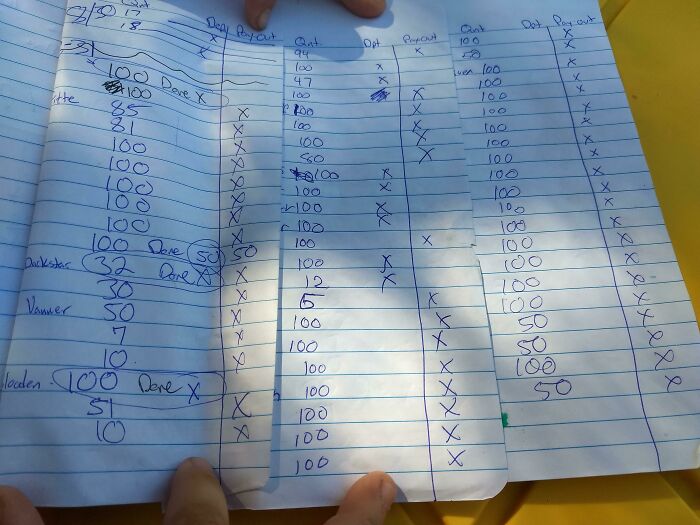 8/30 Qnt Dep Payout
17
18 x
31
x 100 Dave X
100
85 X
81 X
100 X
100 X
100 X
100 X
100 X
100 Dave 50 50
32 Dave X X
30 X
50 X
7 X
10 X
100 Dave X
51 X
10 X
Qnt Dpt Payout
94 x
100 x
47 x
100 x
100 x
100 x
100 x
80 x
100 x
100 x
100 x
100 x
100 x
100 x
12 x
5 x
100 x
100 x
100 x
100 x
100 x
100 x
100 x
Qnt Dpt Payout
100 x
50 x
100 x
100 x
100
100 x
100 x
100 x
100 x
100 x
100 x
100 x
100 x
100 x
100 x
100 x
100 x
50 x
50 x
100 x
50 x